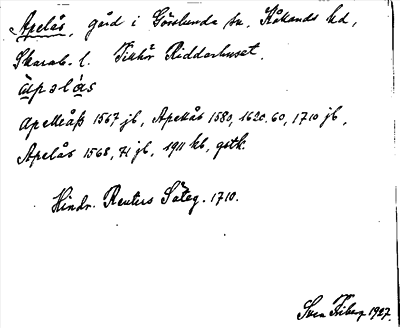 Apelås, gård i Görslunda sn. Kåkinds hd,
Skarab. l. Tillhör Riddarhuset.
àpəlás
Apellåß 1567 jb, Apellås 1580, 1620, 60, 1710 jb,
Apelås 1568, 71 jb, 1911 kb, gstk.
Hindr. Reuters Säteg. 1710.
Sven Friberg 1927.